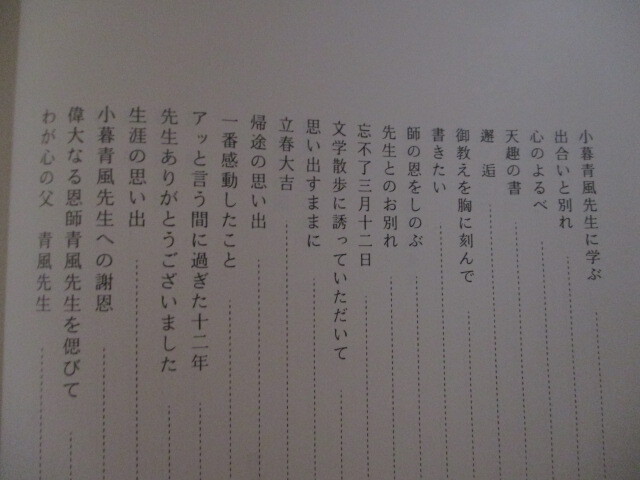 小暮青風先生に学ぶ
出合いと別れ
心のよるべ
天趣の書
邂逅
御教えを胸に刻んで
書きたい
師の恩をしのぶ
先生とのお別れ
忘不了三月十二日
文学散歩に誘っていただいて
思い出すままに
立春大吉
帰途の思い出
一番感動したこと
アッと言う間に過ぎた十二年
先生ありがとうございました
生涯の思い出
小暮青風先生への謝恩
偉大なる恩師青風先生を偲びて
わが心の父 青風先生